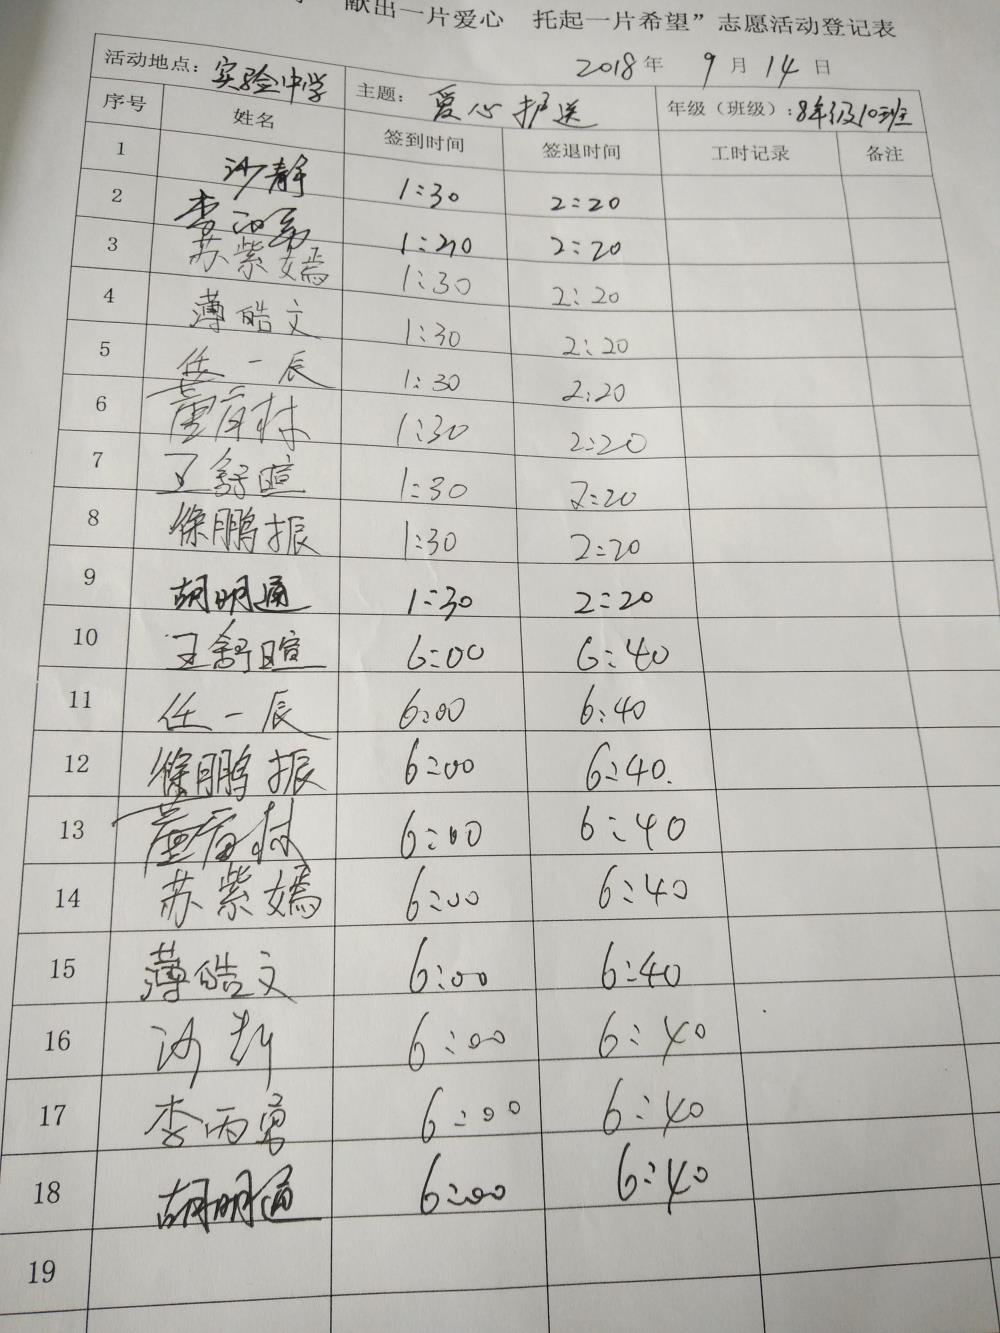 献出一片爱心 托起一片希望”志愿活动登记表
2018年 9月14日
活动地点：实验中学 主题：爱心护送 年级（班级）：8年级10班
序号 姓名 签到时间 签退时间 工时记录 备注
1 沙静 1:30 2:20
2 李丙勇 1:20 2:20
3 苏紫嫣 1:30 2:20
4 薄皓文 1:30 2:20
5 任一辰 1:30 2:20
6 1:30 2:20
7 王舒暄 1:30 2:20
8 徐鹏振 1:30 2:20
9 胡明通 1:30 2:20
10 王舒暄 6:00 6:40
11 任一辰 6:00 6:40
12 徐鹏振 6:00 6:40.
13 6:00 6:40
14 苏紫嫣 6:00 6:40
15 薄皓文 6:00 6:40
16 沙 6:00 6:40
17 李丙勇 6:00 6:40
18 胡明通 6:00 6:40
19